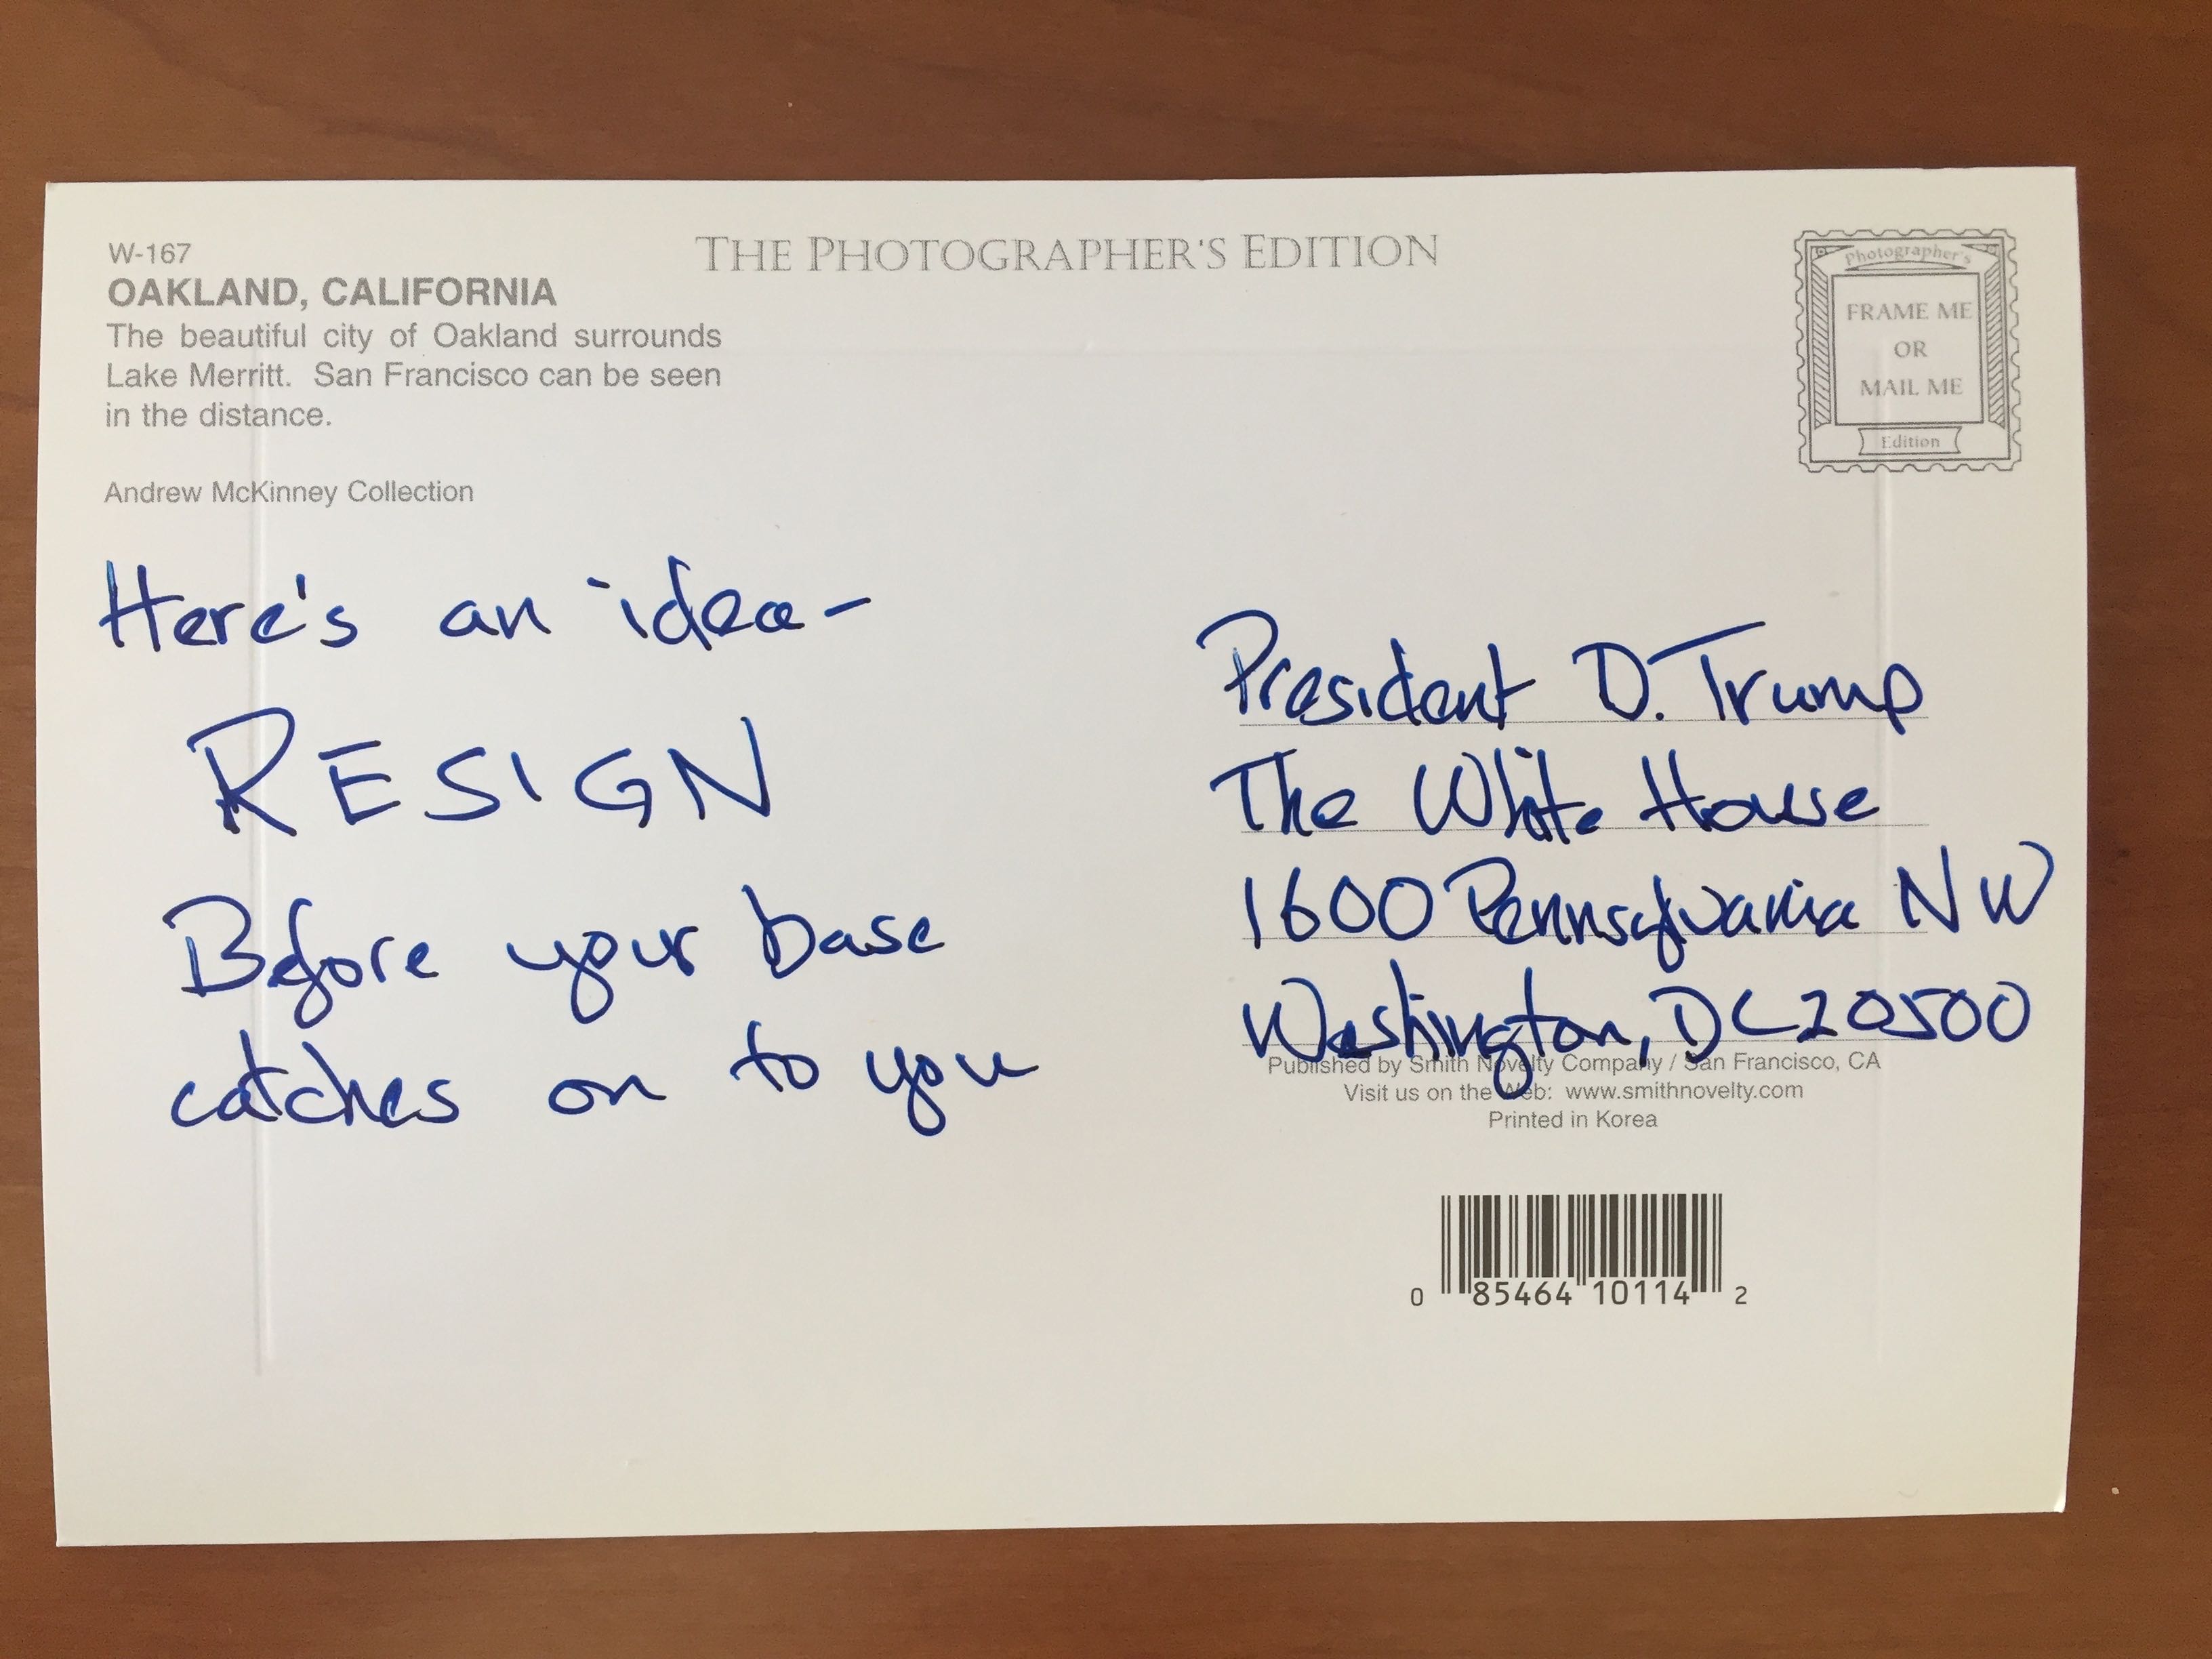 W-167
OAKLAND, CALIFORNIA
The beautiful city of Oakland surrounds
Lake Merritt. San Francisco can be seen
in the distance.
Andrew McKinney Collection
THE PHOTOGRAPHER'S EDITION
Photographer's
FRAME ME
OR
MAIL ME
Edition
Here's an idea-
RESIGN
Before your base
catches on to you
President D. Trump
The White House
1600 Pennsylvania NW
Washington, DC 20500
Published by Smith Novelty Company / San Francisco, CA
Visit us on the Web: www.smithnovelty.com
Printed in Korea
0 85464 10114 2